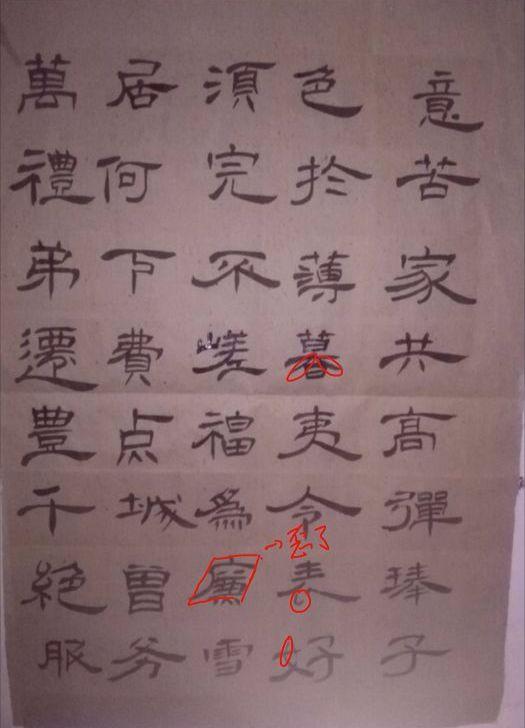 意苦家共高彈琫子
色於薄暮夷令表好
須完不嵯福為廉雪
居何下費点城曾务
萬禮弟遷豊千絕服
歪了